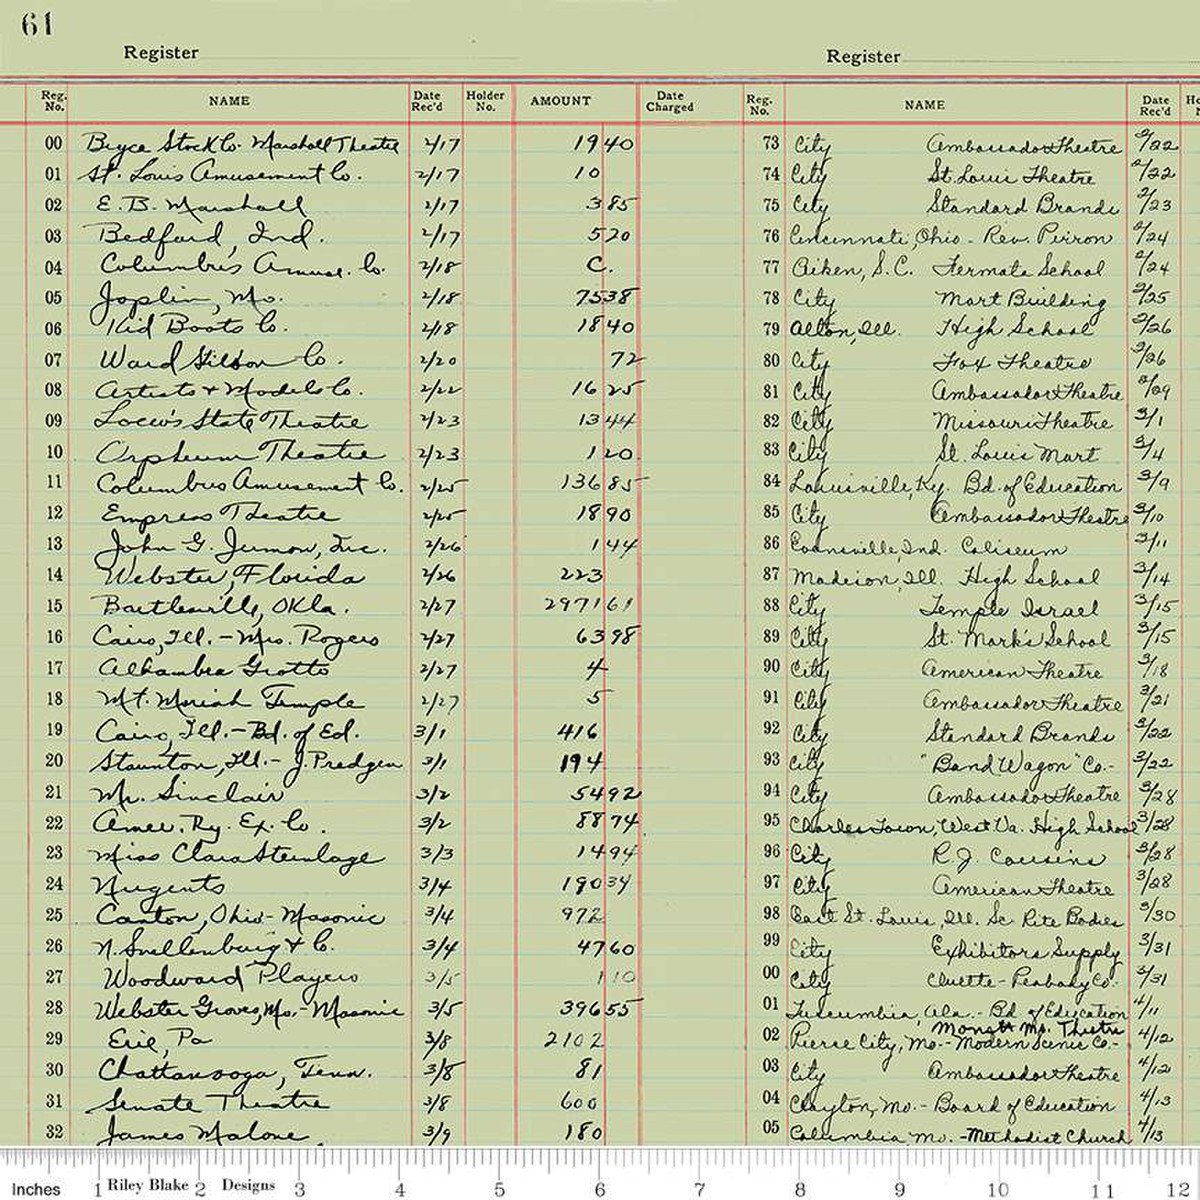 61
Register Register
Reg. No. NAME Date Rec'd Holder No. AMOUNT Date Charged Reg. No. NAME Date Rec'd
00 Bryce Stock Co. Marshall Theatre 2/17 19 40 73 City Ambassador Theatre 2/22
01 St. Louis Amusement Co. 2/17 10 74 City St. Louis Theatre 2/22
02 E. B. Marshall 2/17 3 85 75 City Standard Brands 2/23
03 Bedford, Ind. 2/17 5 20 76 Cincinnati, Ohio - Rev. Pirron 2/24
04 Columbus Amuse. Co. 2/18 C. 77 Aiken, S.C. Fermata School 2/24
05 Joplin, Mo. 2/18 75 38 78 City Mart Building 2/25
06 Kid Boots Co. 2/18 18 40 79 Alton, Ill. High School 2/26
07 Ward Co. 2/20 72 80 City Fox Theatre 2/26
08 Artists & Models Co. 2/22 16 25 81 City Ambassador Theatre 2/29
09 Loew's State Theatre 2/23 13 44 82 City Missouri Theatre 3/1
10 Orpheum Theatre 2/23 1 20 83 City St. Louis Mart 3/4
11 Columbus Amusement Co. 2/25 136 85 84 Louisville, Ky. Bd. of Education 3/9
12 Empress Theatre 2/25 18 90 85 City Ambassador Theatre 3/10
13 John G. Inc. 2/26 1 44 86 Evansville, Ind. Coliseum 3/11
14 Webster, Florida 2/26 223 87 Madison, Ill. High School 3/14
15 Bartlesville, Okla. 2/27 2971 61 88 City Temple Israel 3/15
16 Cairo, Ill. - Mrs. Rogers 2/27 63 98 89 City St. Mark's School 3/15
17 Alhambra Grotto 2/27 4 90 City American Theatre 3/18
18 Mt. Moriah Temple 2/27 5 91 City Ambassador Theatre 3/21
19 Cairo, Ill. - Bd. of Ed. 3/1 416 92 City Standard Brands 3/22
20 Staunton, Ill. - J. Predgen 3/1 194 93 City "Band Wagon" Co. - 3/22
21 Mr. Sinclair 3/2 54 92 94 City Ambassador Theatre 3/28
22 Amer. Ry. Ex. Co. 3/2 88 74 95 Charles Town, West Va. High School 3/28
23 Miss Clara Steinlage 3/3 14 94 96 City R. J. Cousins 3/28
24 Nugents 3/4 190 34 97 City American Theatre 3/28
25 Canton, Ohio - Masonic 3/4 972 98 East St. Louis, Ill. Sc. Rite Bodies 3/30
26 N. Snellenburg & Co. 3/4 47 60 99 City Exhibitors Supply 3/31
27 Woodward Players 3/5 1 10 00 City Cluette - Peabody Co. 3/31
28 Webster Groves, Mo. - Masonic 3/5 396 55 01 Tuscumbia, Ala. - Bd. of Education 4/11
Mo. Theatre
29 Erie, Pa 3/8 2102 02 Pierce City, Mo. - Modern Scenic Co. - 4/12
30 Chattanooga, Tenn. 3/8 81 03 City Ambassador Theatre 4/12
31 Senate Theatre 3/8 600 04 Clayton, Mo. - Board of Education 4/13
32 James Malone 3/9 180 05 Columbia Mo. - Methodist Church 4/13
Inches 1 Riley Blake 2 Designs 3 4 5 6 7 8 9 10 11 12